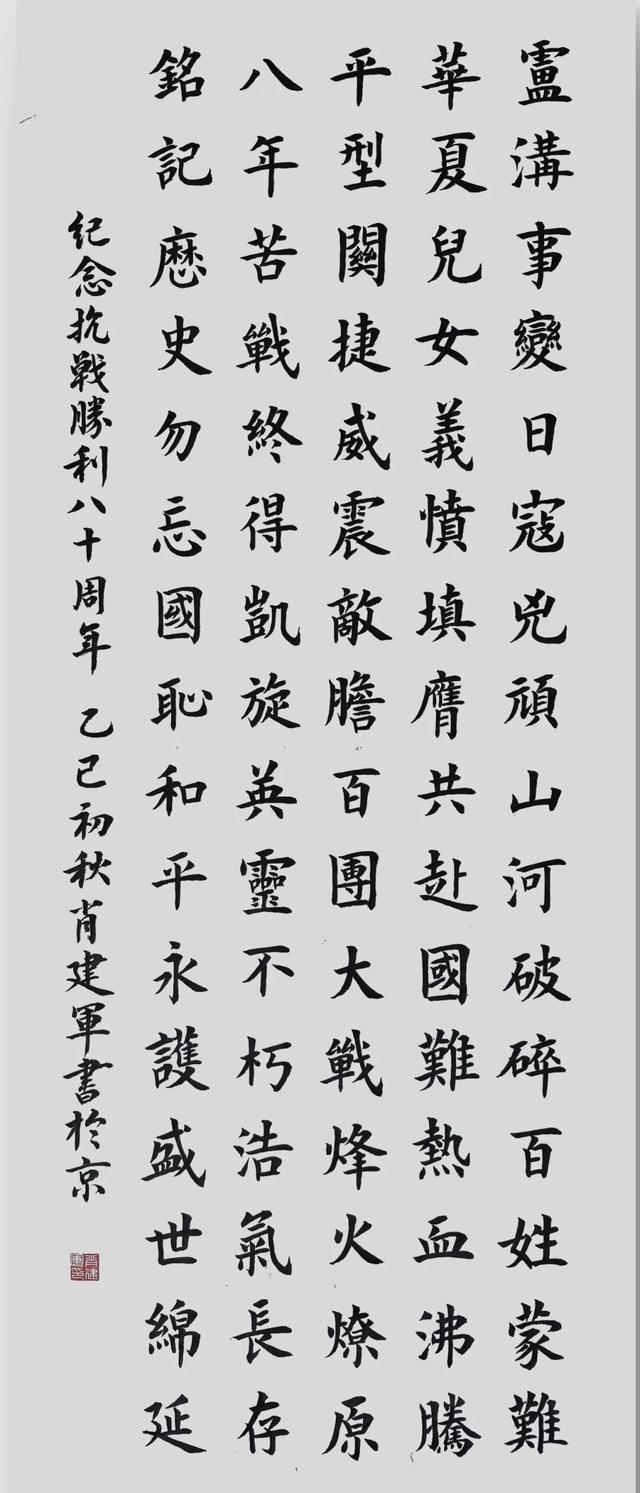 盧溝事變日寇兇頑山河破碎百姓蒙難
華夏兒女義憤填膺共赴國難熱血沸騰
平型關捷威震敵膽百團大戰烽火燎原
八年苦戰終得凱旋英靈不朽浩氣長存
銘記歷史勿忘國恥和平永護盛世綿延
纪念抗戰勝利八十周年 乙巳初秋肖建軍書於京